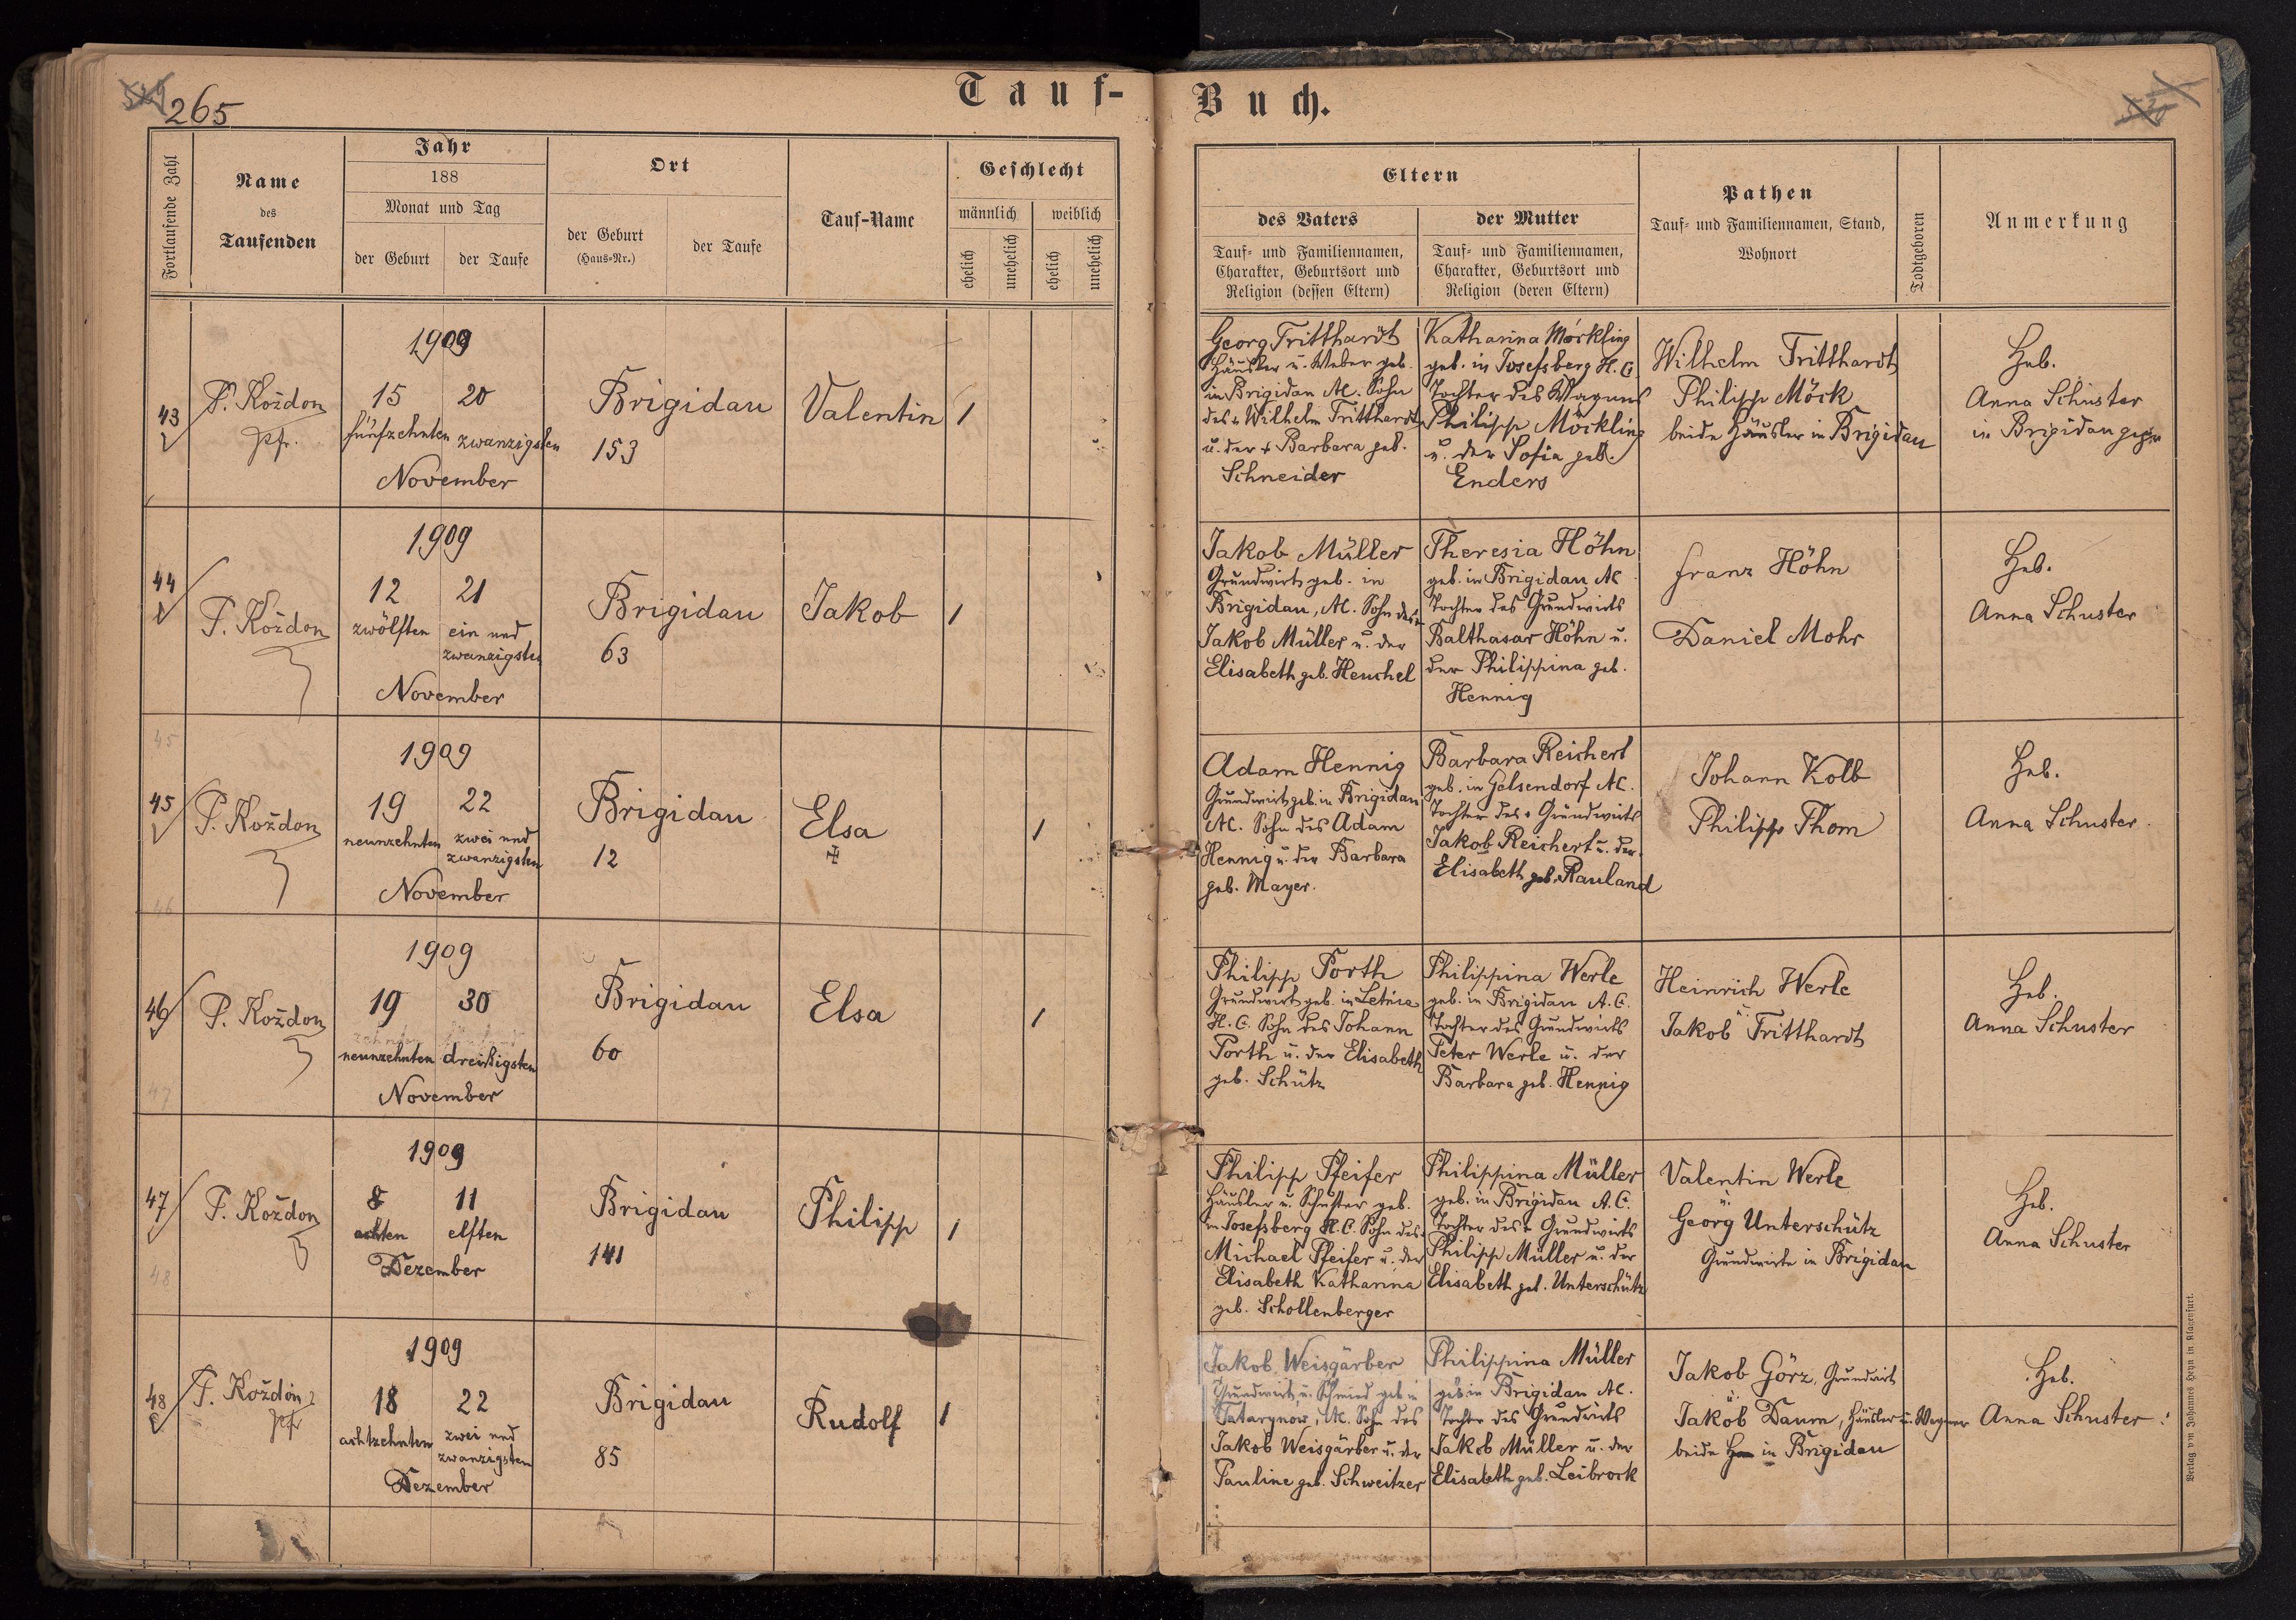 265
Tauf-
Buch.
Fortlaufende Zahl
Name
des
Taufenden
Jahr
188
Monat und Tag
der Geburt
der Taufe
Ort
der Geburt
(Haus-Nr.)
der Taufe
Tauf-Name
Geschlecht
männlich
weiblich
ehelich
unehelich
ehelich
unehelich
Eltern
des Vaters
Tauf- und Familiennamen,
Charakter, Geburtsort und
Religion (dessen Eltern)
der Mutter
Tauf- und Familiennamen,
Charakter, Geburtsort und
Religion (deren Eltern)
Pathen
Tauf- und Familiennamen, Stand,
Wohnort
Todtgeboren
Anmerkung
43
P. Koždon
pfr.
1909
15 20
fünfzehnten zwanzigsten
November
Brigidau
153
Valentin
1
Georg Tritthardt
Häusler u. Weber geb.
in Brigidau AC. Sohn
des + Wilhelm Tritthardt
u. der + Barbara geb.
Schneider
Katharina Möckling
geb. in Josefsberg H.C.
Tochter des Wagners
Philipp Möckling
u. der Sofia geb.
Enders
Wilhelm Tritthardt
Philipp Möck
beide Häusler in Brigidau
Heb.
Anna Schuster
in Brigidau gepr
44
P. Koždon
1909
12 21
zwölften ein und
zwanzigsten
November
Brigidau
63
Jakob
1
Jakob Müller
Grundwirts geb. in
Brigidau, AC. Sohn des
Jakob Müller u. der
Elisabeth geb. Henschel
Theresia Höhn
geb. in Brigidau AC
Tochter des Grundwirts
Balthasar Höhn u.
der Philippina geb.
Hennig
Franz Höhn
Daniel Mohr
Heb.
Anna Schuster
45
45
P. Koždon
1909
19 22
neunzehnten zwei und
zwanzigsten
November
46
Brigidau
12
Elsa
1
Adam Hennig
Grundwirts geb. in Brigidau
AC. Sohn des Adam
Hennig u. der Barbara
geb. Mayer.
Barbara Reichert
geb. in Gelsendorf AC.
Tochter des + Grundwirts
Jakob Reichert u. der
Elisabeth geb. Rauland
Johann Kolb
Philipp Thom
Heb.
Anna Schuster.
46
P. Koždon
1909
19 30
neunzehnten dreißigsten
November
47
Brigidau
60
Elsa
1
Philipp Porth
Grundwirt geb. in Letnia
H.C. Sohn des Johann
Porth u. der Elisabeth
geb. Schütz
Philippina Werle
geb. in Brigidau A.C.
Tochter des Grundwirts
Peter Werle u. der
Barbara geb. Hennig
Heinrich Werle
Jakob Tritthardt
Heb.
Anna Schuster
47
P. Koždon
1909
8 11
achten elften
Dezember
48
Brigidau
141
Philipp
1
Philipp Pfeifer
Häusler u. Schuster geb.
in Josefsberg H.C. Sohn des
Michael Pfeifer u. der
Elisabeth Katharina
geb. Schollenberger
Philippina Müller
geb. in Brigidau A.C.
Tochter des + Grundwirts
Philipp Müller u. der
Elisabeth geb. Unterschütz
Valentin Werle
u.
Georg Unterschütz
Grundwirte in Brigidau
Heb.
Anna Schuster
48
P. Koždon
pfr
1909
18 22
achtzehnten zwei und
zwanzigsten
Dezember
Brigidau
85
Rudolf
1
Jakob Weisgärber
Grundwirt u. Schmied geb in
Tatarynów, AC. Sohn des
Jakob Weisgärber u. der
Pauline geb. Schweitzer
Philippina Müller
geb in Brigidau AC.
Tochter des Grundwirts
Jakob Müller u. der
Elisabeth geb. Leibrock
Jakob Görz, Grundwirt
u.
Jakob Daum, Häusler u. Wagner
beide in Brigidau
Heb.
Anna Schuster
Verlag von Johannes Heyn in Klagenfurt.